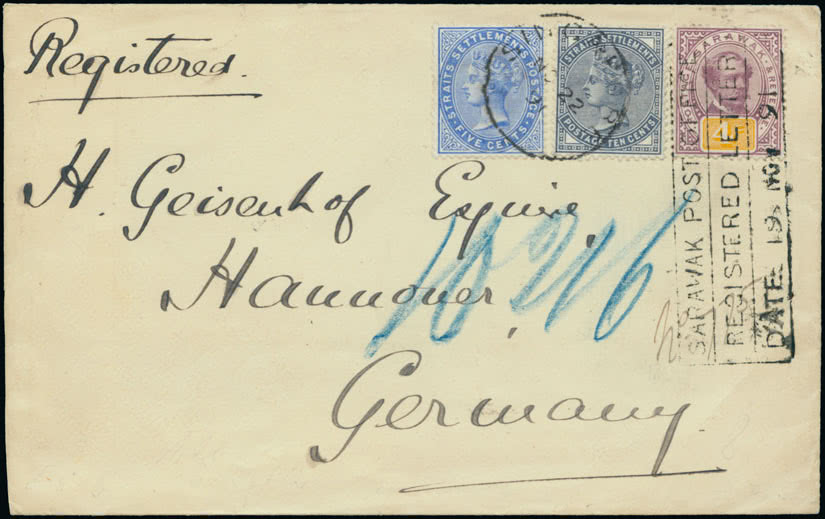 Registered.
STRAITS SETTLEMENTS POSTAGE
FIVE CENTS
STRAITS SETTLEMENTS
POSTAGE TEN CENTS
SARAWAK
4
NO 22
H. Geisenhof Esquire,
Hannover,
Germany.
SARAWAK POST OFFICE
REGISTERED LETTER
DATE 19